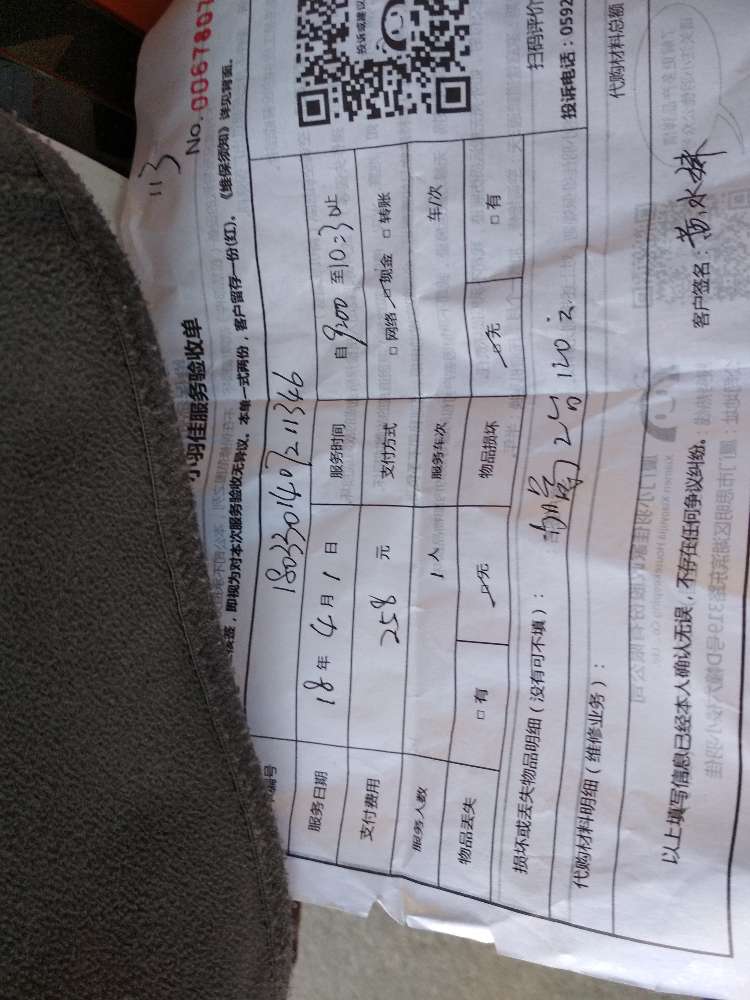 113
No. 0067807
小羽佳服务验收单
即视为对本次服务验收无异议。本单一式两份，客户留存一份(红)。《维保须知》详见背面。
编号 180330140721 1346
服务日期 18 年 4 月 1 日 服务时间 自 9:00 至 10:30 止
支付费用 258 元 支付方式 □ 网络 □ 现金 □ 转账
服务人数 1 人 服务车次 车/次
物品丢失 □ 有 □ 无 物品损坏 □ 无 □ 有
损坏或丢失物品明细（没有可不填）：
代购材料明细（维修业务）：
代购材料总额
以上填写信息已经本人确认无误，不存在任何争议纠纷。 客户签名：黄水妹
投诉或建议
扫码评价
投诉电话：0592